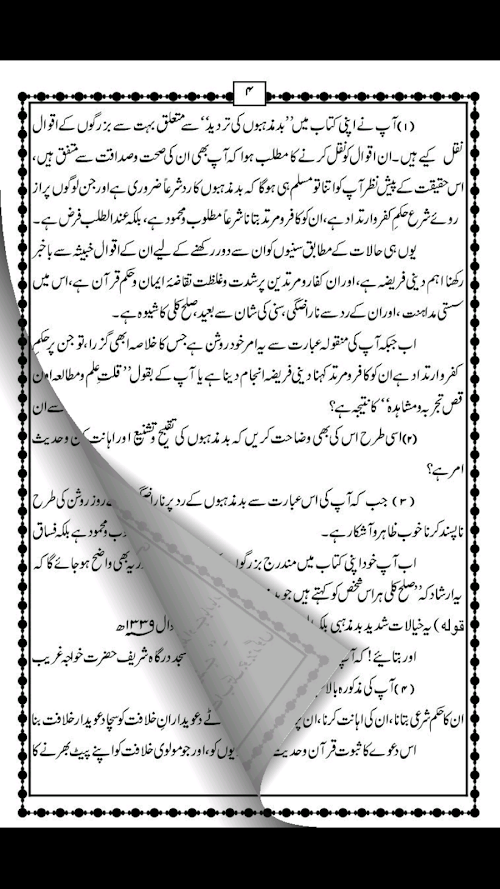 ۴
(۱) آپ نے اپنی کتاب میں ’’بدمذہبوں کی تردید‘‘ سے متعلق بہت سے بزرگوں کے اقوال
نقل کیے ہیں۔ ان اقوال کو نقل کرنے کا مطلب ہوا کہ آپ بھی ان کی صحت وصداقت سے متفق ہیں،
اس حقیقت کے پیش نظر آپ کو اتنا تو مسلم ہی ہوگا کہ بدمذہبوں کا رد شرعاً ضروری ہے اور جن لوگوں پر از
روئے شرع حکم کفر وارتداد ہے، ان کو کافر ومرتد بتانا شرعاً مطلوب ومحمود ہے، بلکہ عند الطلب فرض ہے۔
یوں ہی حالات کے مطابق سنیوں کو ان سے دور رکھنے کے لیے ان کے اقوال خبیثہ سے باخبر
رکھنا اہم دینی فریضہ ہے، اور ان کفار ومرتدین پر شدت وغلظت تقاضۂ ایمان وحکم قرآن ہے، اس میں
سستی مداہنت ، اور ان کے رد سے ناراضگی ، سنی کی شان سے بعید، صلح کلی کا شیوہ ہے۔
اب جبکہ آپ کی منقولہ عبارت سے یہ امر خود روشن ہے جس کا خلاصہ ابھی گزرا، تو جن پر حکم
کفر وارتداد ہے ان کو کافر ومرتد کہنا دینی فریضہ انجام دینا ہے یا آپ کے بقول ’’قلت علم ومطالعہ اور
قص تجربہ ومشاہدہ‘‘ کا نتیجہ ہے؟ سے ان
(۲) اسی طرح اس کی بھی وضاحت کریں کہ بدمذہبوں کی تقبیح وتشنیع اور اہانت ن وحدیث
امر ہے؟
(۳) جب کہ آپ کی اس عبارت سے بدمذہبوں کے رد پر ناراضگی روز روشن کی طرح
ناپسند کرنا خوب ظاہر وآشکار ہے۔ ب ومحمود ہے بلکہ فساق
اب آپ خود اپنی کتاب میں مندرج بزرگوں ریہ بھی واضح ہوجائے گا کہ
یہ ارشاد کہ ’’صلح کلی ہر اس شخص کو کہتے ہیں جو
قولہ) یہ خیالات شدید بدمذہبی بلکہ وال ۱۳۳۹ھ
اور بتائیے! کہ آپ سجد درگاہ شریف حضرت خواجہ غریب
(۴) آپ کی مذکورہ بالا
ان کا حکم شرعی بتانا، ان کی اہانت کرنا، ان پر لے دعویداران خلافت کو سچا دعویدار خلافت بنا
اس دعوے کا ثبوت قرآن وحدیث یوں کو، اور جو مولوی خلافت کو اپنے پیٹ بھرنے کا